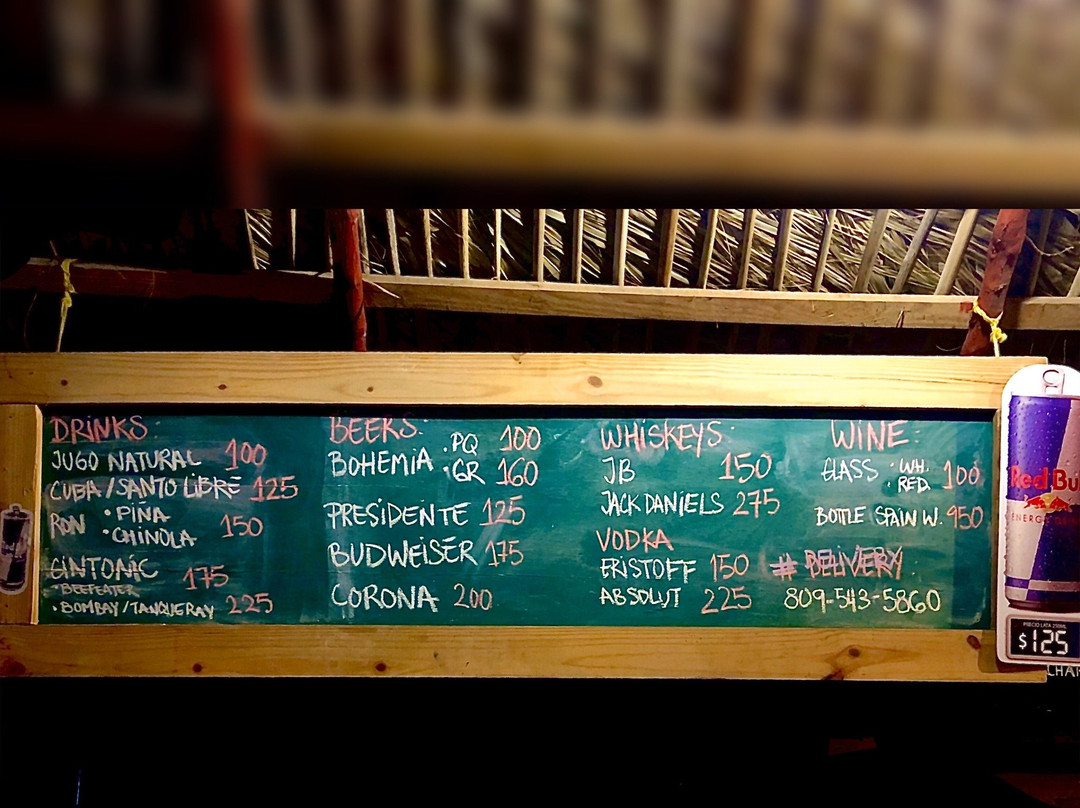 DRINKS:
JUGO NATURAL 100
CUBA/SANTO LIBRE 125
RON • PIÑA
• CHINOLA 150
GINTONIC
• BEEFEATER 175
• BOMBAY/TANQUERAY 225
BEERS:
BOHEMIA • PQ 100
• GR 160
PRESIDENTE 125
BUDWEISER 175
CORONA 200
WHISKEYS:
JB 150
JACK DANIELS 275
VODKA
ERISTOFF 150
ABSOLUT 225
WINE:
GLASS • WH. 100
RED.
BOTTLE SPAIN W. 950
# DELIVERY
809-543-5860
Red Bu
ENERGY D
PRECIO LATA 250ML
$125
CHAR